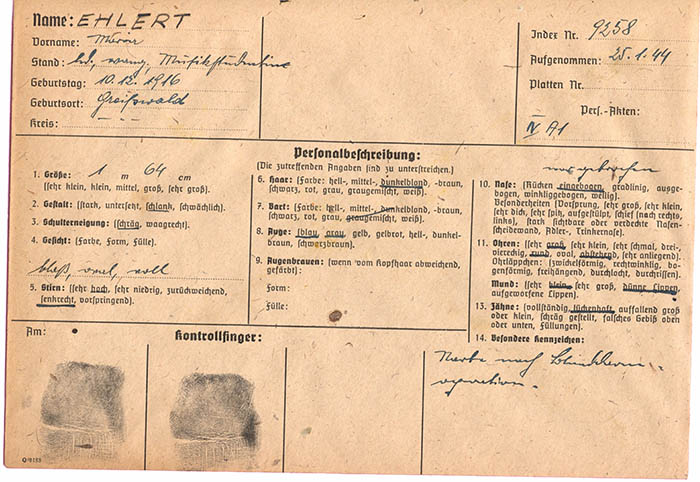 Name: EHLERT
Vorname:
Stand: led, evang. Musikstudentin
Geburtstag: 10.12.1916
Geburtsort: Greifswald
Kreis: - - -
Index Nr. 9258
Aufgenommen: 25.1.44
Platten Nr.
Pers.-Akten:
IV A1
Personalbeschreibung:
(Die zutreffenden Angaben sind zu unterstreichen.)
1. Größe: 1 m 64 cm
(sehr klein, klein, mittel, groß, sehr groß).
2. Gestalt: (stark, untersetzt, schlank, schwächlich).
3. Schulterneigung: (schräg, waagrecht).
4. Gesicht: (Farbe, Form, Fülle).
bleß, oval, voll
5. Stirn: (sehr hoch, sehr niedrig, zurückweichend,
senkrecht, vorspringend).
6. Haar: (Farbe: hell-, mittel-, dunkelblond, -braun,
schwarz, rot, grau, graugemischt, weiß).
7. Bart: (Farbe: hell-, mittel-, dunkelblond, -braun,
schwarz, rot, grau, graugemischt, weiß).
8. Auge: (blau, grau, gelb, gelbrot, hell-, dunkel-
braun, schwarzbraun).
9. Augenbrauen: (wenn vom Kopfhaar abweichend,
gefärbt):
Form:
Fülle:
10. Nase: (Rücken eingebogen, gradlinig, ausge-
bogen, winkliggebogen, wellig).
Besonderheiten (Vorsprung, sehr groß, sehr klein,
sehr dick, sehr spitz, aufgestülpt, schief (nach rechts,
links), stark sichtbare oder verdeckte Nasen-
scheidewand, Adler-, Trinkernase).
11. Ohren: (sehr groß, sehr klein, sehr schmal, drei-,
viereckig, rund, oval, abstehend, sehr anliegend).
Ohrläppchen: (zwickelförmig, rechtwinklig, bo-
genförmig, freihängend, durchlocht, durchrissen).
Mund: (sehr klein, sehr groß, dünne Lippen,
aufgeworfene Lippen).
13. Zähne: (vollständig, lückenhaft, auffallend groß
oder klein, schräg gestellt, falsches Gebiß oben
oder unten, Füllungen).
14. Besondere Kennzeichen:
Narbe nach Blinddarm-
operation.
Am:
Kontrollfinger: